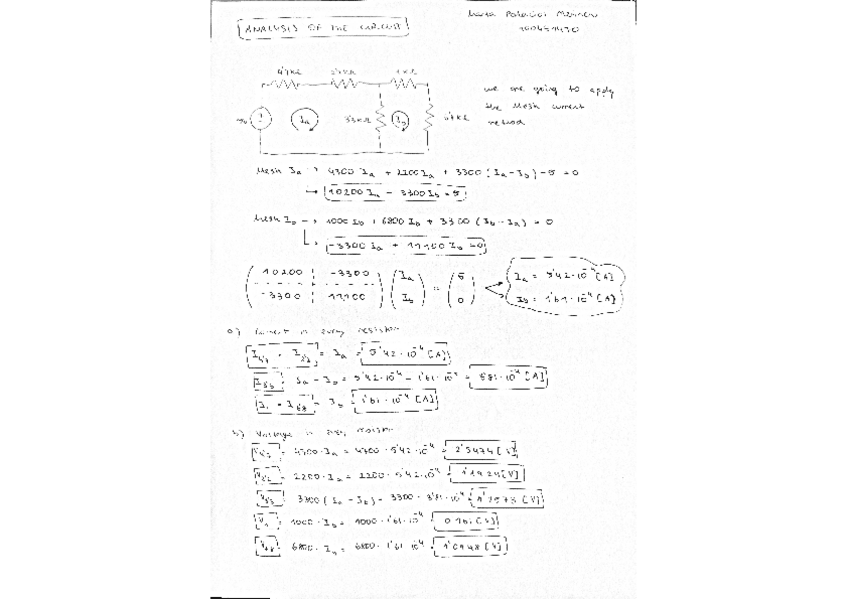 ANALYSIS OF THE CIRCUIT
4'7kΩ 2'2kΩ 1kΩ
we are going to apply
the Mesh current
method
Ia 3'3kΩ Ib 6'8kΩ
Mesh Ia → 4700 Ia + 2200 Ia + 3300 (Ia-Ib) - 5 = 0
→ 10200 Ia - 3300 Ib = 5
Mesh Ib → 1000 Ib + 6800 Ib + 3300 (Ib-Ia) = 0
→ -3300 Ia + 11100 Ib = 0
10200 -3300 Ia = 5 Ia = 5'42·10⁻⁴ [A]
-3300 11100 Ib 0 Ib = 1'61·10⁻⁴ [A]
a) Current in every resistor
I4'7 = I2'2 = Ia = 5'42·10⁻⁴ [A]
I3'3 = Ia - Ib = 5'42·10⁻⁴ - 1'61·10⁻⁴ = 3'81·10⁻⁴ [A]
I1 = I6'8 = Ib = 1'61·10⁻⁴ [A]
b) Voltage in every resistor
V4'7 = 4700·Ia = 4700·5'42·10⁻⁴ = 2'5474 [V]
V2'2 = 2200·Ia = 2200·5'42·10⁻⁴ = 1'1924 [V]
V3'3 = 3300 (Ia - Ib) = 3300·3'81·10⁻⁴ = 1'2573 [V]
V1 = 1000·Ib = 1000·1'61·10⁻⁴ = 0'161 [V]
V6'8 = 6800·Ib = 6800·1'61·10⁻⁴ = 1'0948 [V]